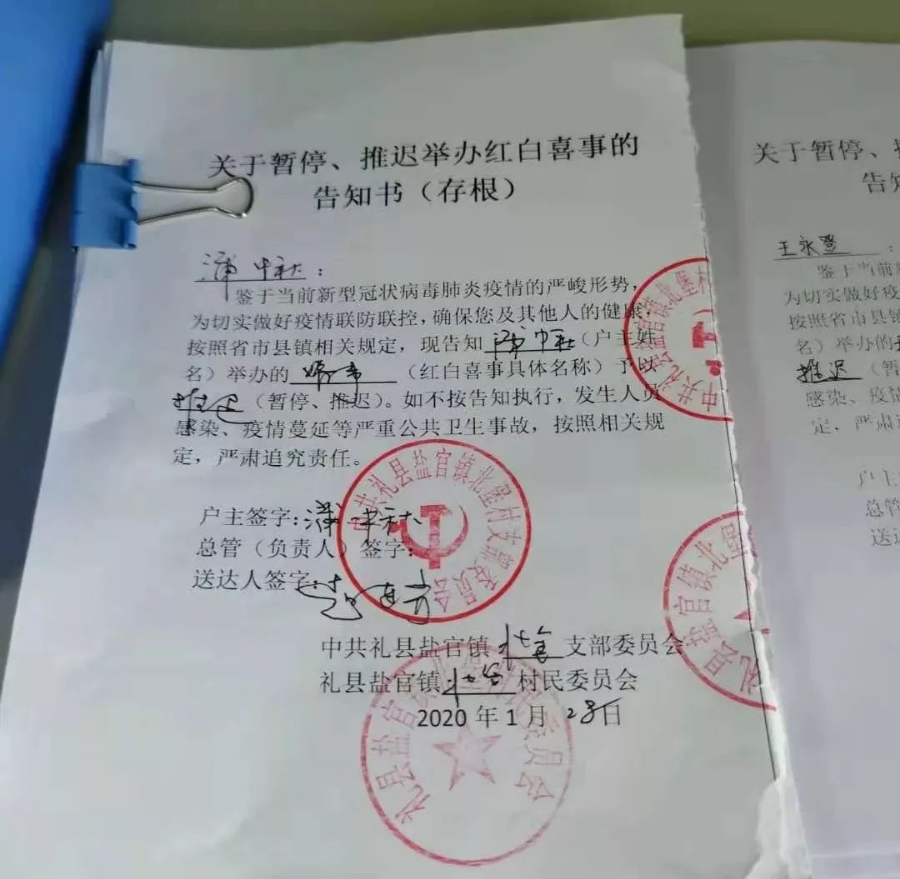 关于暂停、推迟举办红白喜事的
告知书（存根）
蒲中秋：
鉴于当前新型冠状病毒肺炎疫情的严峻形势，
为切实做好疫情联防联控，确保您及其他人的健康，
按照省市县镇相关规定，现告知 蒲中秋（户主姓
名）举办的（红白喜事具体名称）予以
推迟（暂停、推迟）。如不按告知执行，发生人员
感染、疫情蔓延等严重公共卫生事故，按照相关规
定，严肃追究责任。
户主签字：蒲中秋
总管（负责人）签字：
送达人签字：
中共礼县盐官镇北堡支部委员会
礼县盐官镇北堡村民委员会
2020 年 1 月 28日
中共礼县盐官镇北堡村支部委员会
礼县盐官镇北堡村民委员会
中共礼县盐官镇北堡村
礼县盐官镇北堡
关于暂停、
告知
王永登：
鉴于当前
为切实做好疫
按照省市县镇
名）举办的
推迟（暂
感染、疫情
定，严肃
户主
总管
送达